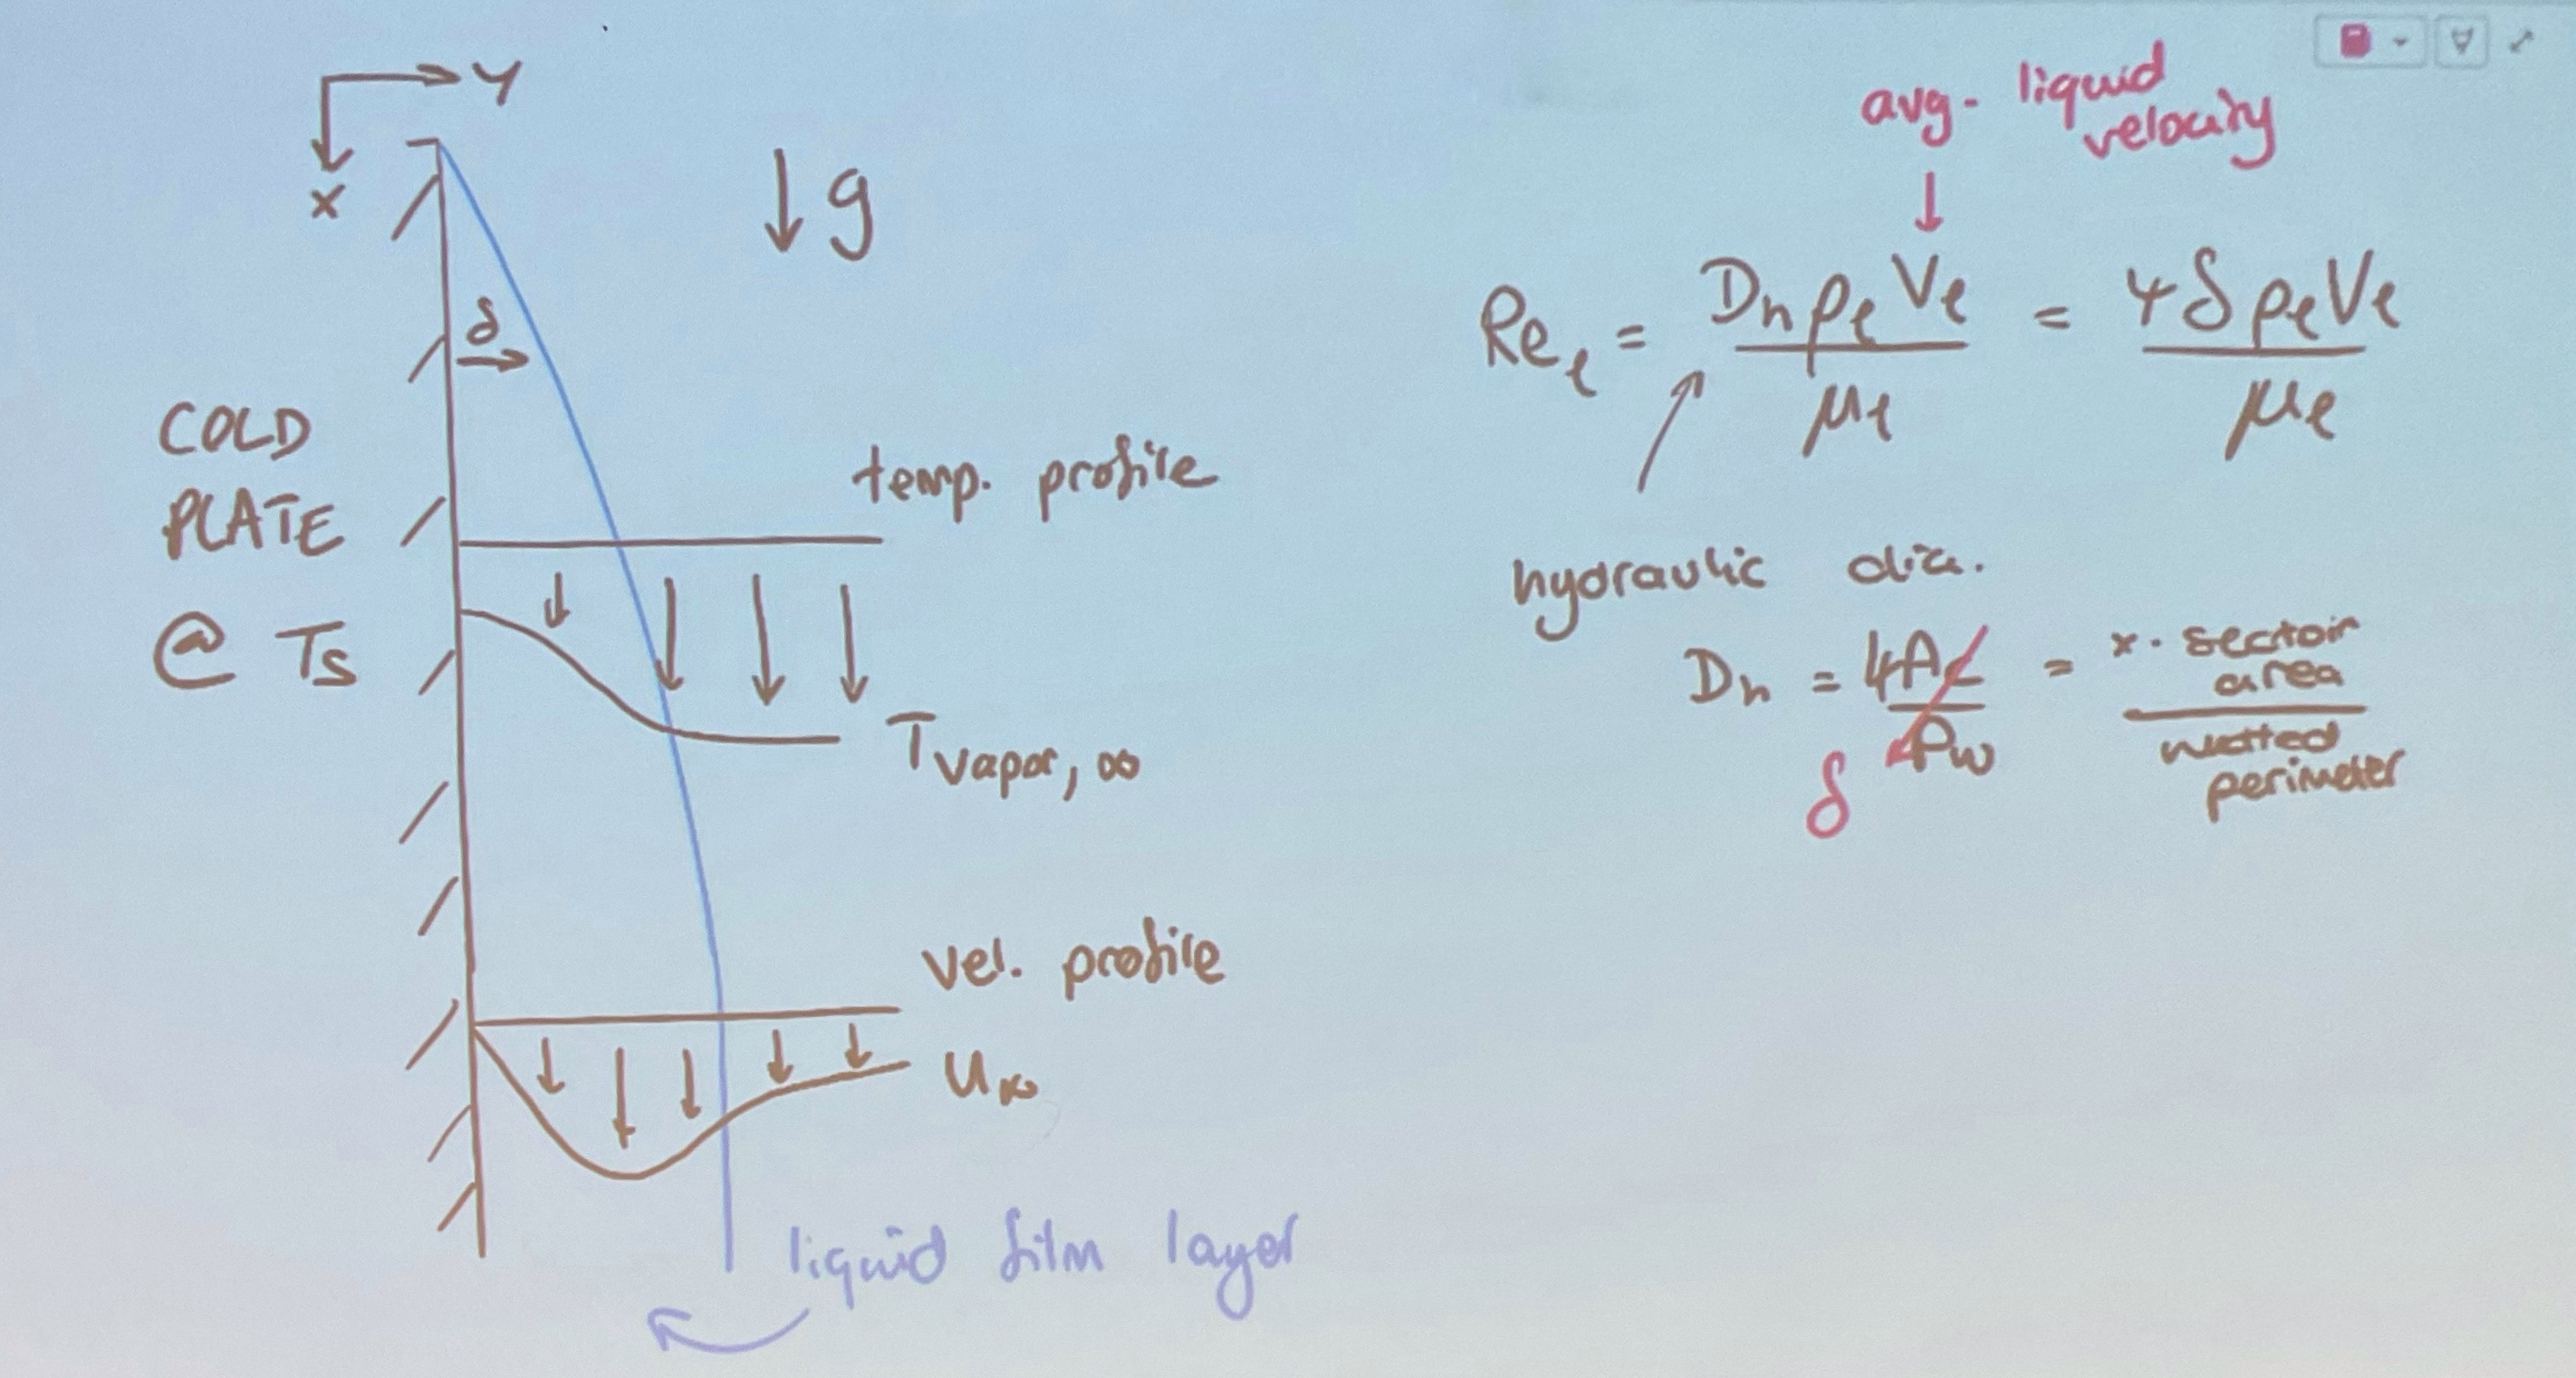 Y
X
g
δ
COLD
PLATE
@ Ts
temp. profile
Tvapor, ∞
vel. profile
U∞
liquid film layer
avg. liquid
velocity
Reℓ = Dh ρℓ Vℓ / μℓ = 4 δ ρℓ Vℓ / μℓ
hydraulic dia.
Dh = 4Ac / Pw = x. sectoin area / wetted perimeter
δ